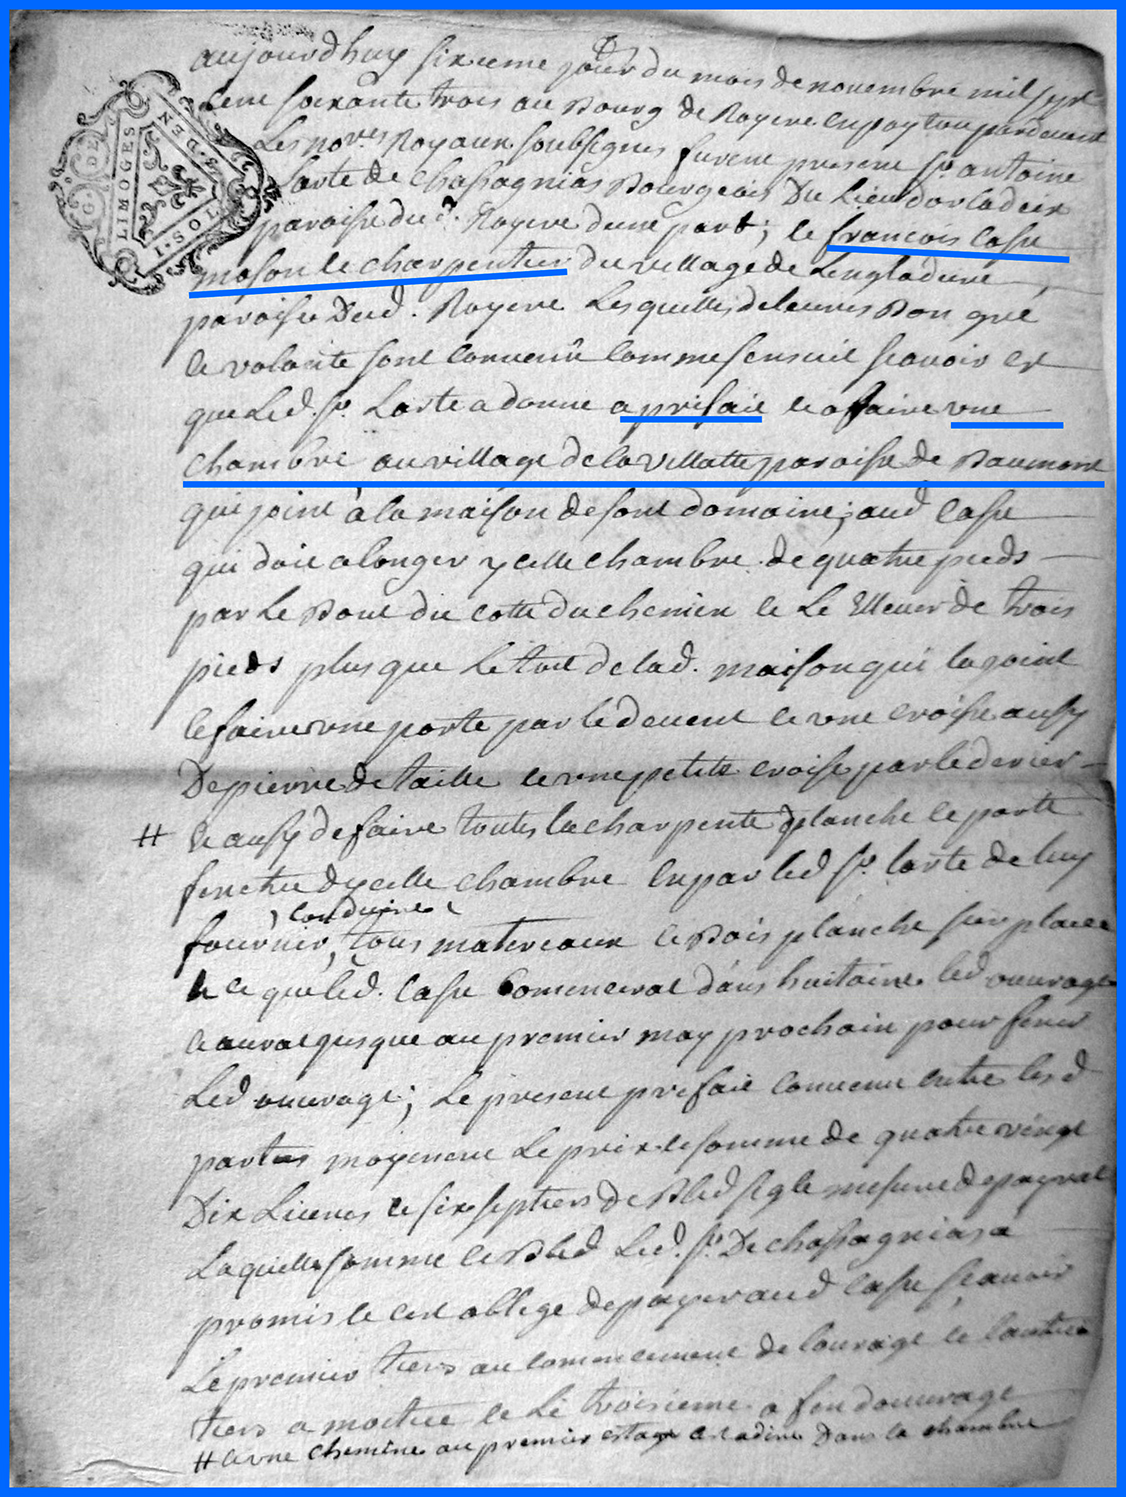 G. DE
LIMOGES
I. SOL
6. DEN
aujourdhuy sixieme jour du mois de novembre mil sept
cent soixante trois au Bourg de Royere en poytou pardevant
Les no.res Royaux soubsignes furent present sr. antoine
Larte de Chassagnias Bourgeois Du Lieu
paroisse dud. Royere dune part; et francois Casse
mason et charpentier du village de Lengladure
paroisse Dud. Royere Lesquelles de leur Bon gre
et volonté sont convenu comme sensuit scavoir est
que Led. sr. Larte a donne a prifait et a ffaire vne
chambre au village de la villatte paroisse de Baumont
qui joint à la maison de sont domaine; aud Casse
qui doit alonger ycelle chambre de quatre pieds
par Le Bout du cotte du chemien et Le Ellever de trois
pieds plus que Le toit de lad. maison qui la joint
et faire vne porte par le devent et vne croise aussy
De pierre de taille et vne petite croise par le derier
# et aussy de faire toutes la charpente planche et porte
fenetre dycelle chambre en par led sr. larte de luy
conduire
fournir, tous matereaux et Bois planche sur place
et ce que led. Casse Comencerat dans huitaine led ouvrage
et aurat jusque au premier may prochain pour finir
Led ouvrage; Le present prifait convenu entre lesd
parties moyenent Le prix et somme de quatre vingt
Dix Livres et six septiers de Bled segle mesure de payrat
Laquelle somme et Bled Led. sr. De chassagnias a
promis et cest obblige de payer aud Casse scavoir
Le premier tiers au commencement de louvrage et lautre
tiers a moitiee et Le troisieme a fin douvrage
# et vne cheminee au premier estage cest adire Dans la chambre